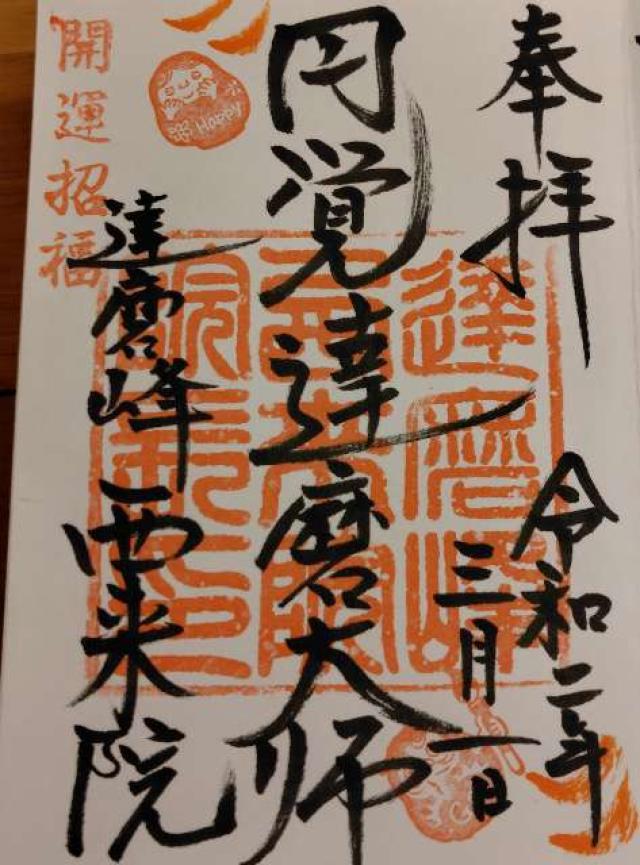 奉拝
令和二年
三月一日
円覚達磨大師
達磨峰西来院
開運招福
Happy
達磨峰
西来院